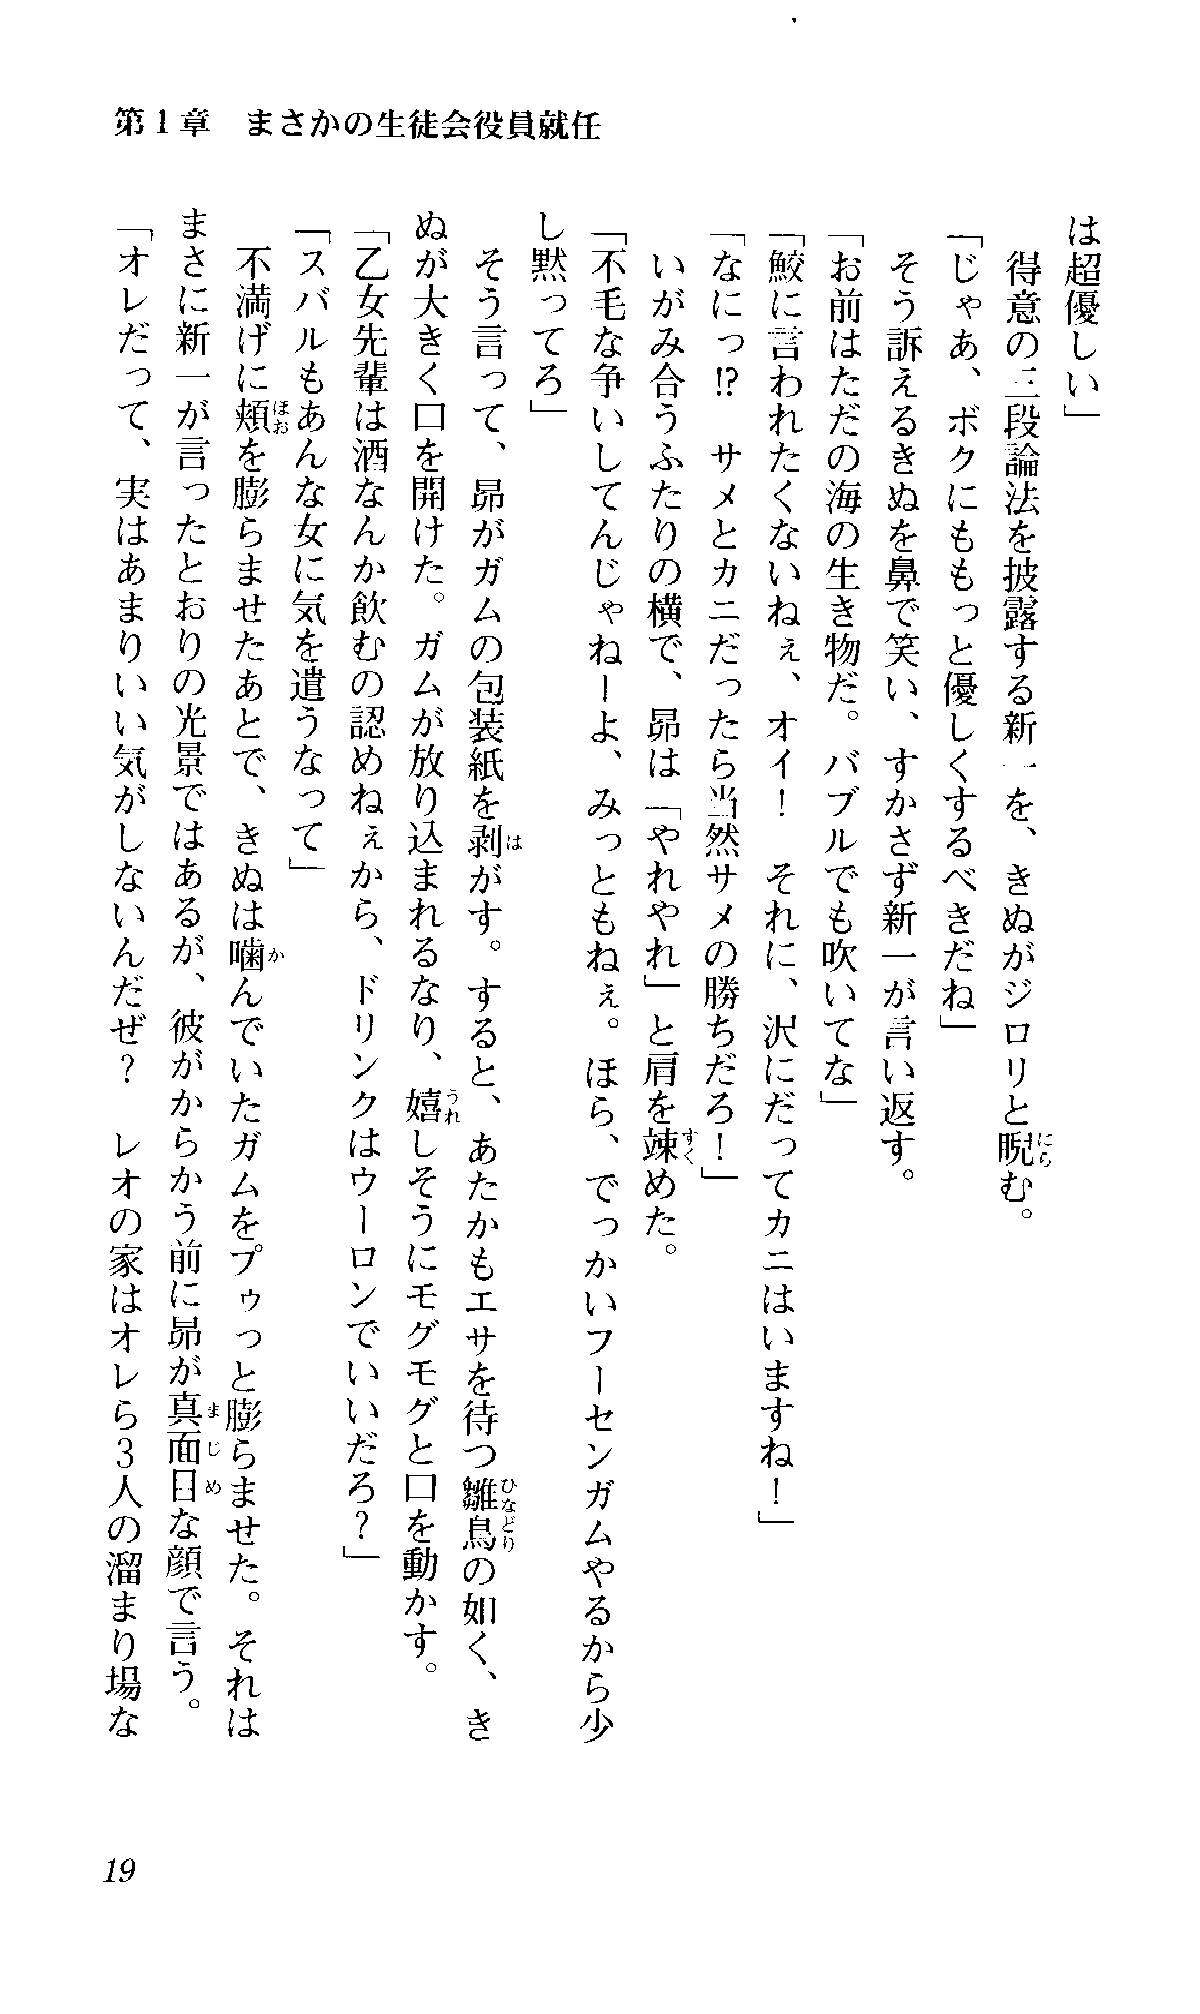 第1章　まさかの生徒会役員就任
は超優しい」
　得意の三段論法を披露する新一を、きぬがジロリと睨む。
「じゃあ、ボクにももっと優しくするべきだね」
　そう訴えるきぬを鼻で笑い、すかさず新一が言い返す。
「お前はただの海の生き物だ。バブルでも吹いてな」
「鮫に言われたくないねぇ、オイ！　それに、沢にだってカニはいますね！」
「なにっ⁉　サメとカニだったら当然サメの勝ちだろ！」
　いがみ合うふたりの横で、昴は「やれやれ」と肩を竦めた。
「不毛な争いしてんじゃねーよ、みっともねぇ。ほら、でっかいフーセンガムやるから少
し黙ってろ」
　そう言って、昴がガムの包装紙を剥がす。すると、あたかもエサを待つ雛鳥の如く、き
ぬが大きく口を開けた。ガムが放り込まれるなり、嬉しそうにモグモグと口を動かす。
「乙女先輩は酒なんか飲むの認めねぇから、ドリンクはウーロンでいいだろ？」
「スバルもあんな女に気を遣うなって」
　不満げに頬を膨らませたあとで、きぬは噛んでいたガムをプゥっと膨らませた。それは
まさに新一が言ったとおりの光景ではあるが、彼がからかう前に昴が真面目な顔で言う。
「オレだって、実はあまりいい気がしないんだぜ？　レオの家はオレら3人の溜まり場な
19